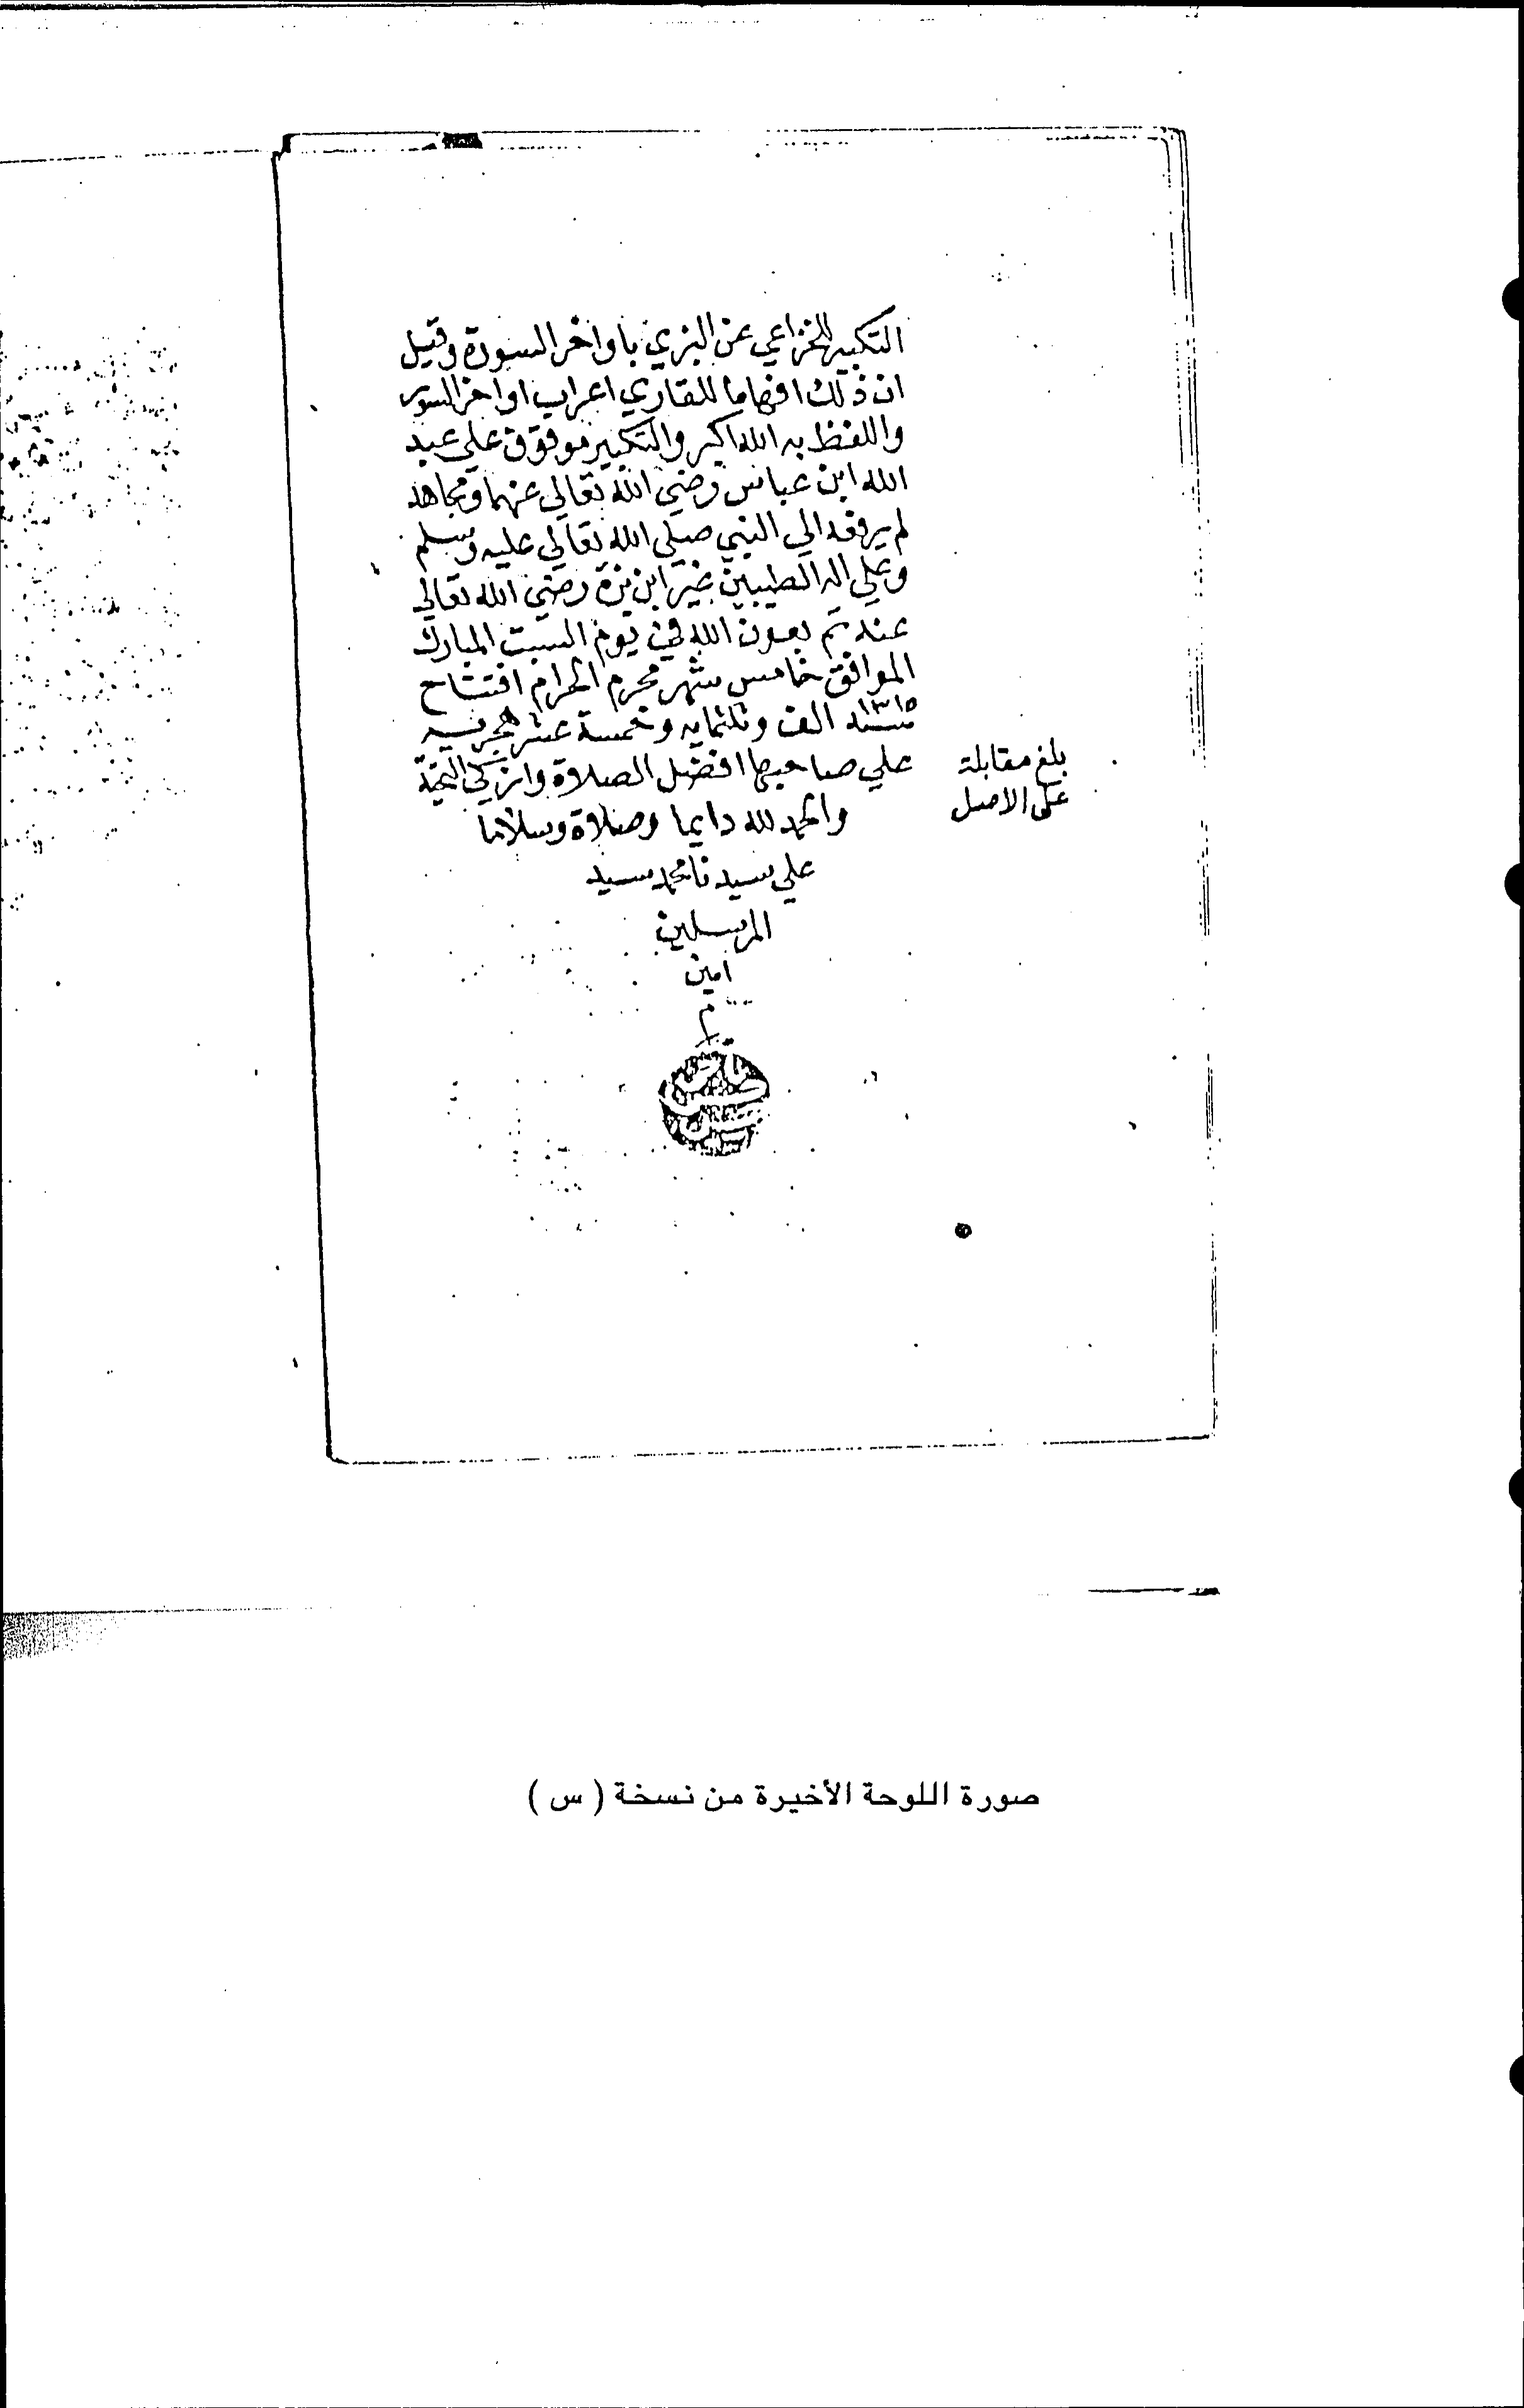 التكبير للخزاعي عن البزي باواخر السورة وقيل
ان ذلك افهاما للقاري اعراب اواخر السور
واللفظ به الله اكبر والتكبير موقوف علي عبد
الله ابن عباس رضي الله تعالي عنهما ومجاهد
لم يرفعه الي النبي صلي الله تعالي عليه وسلم
وعلي اله الطيبين غير ابن بزة رضي الله تعالي
عنه تم بعون الله في يوم السبت المبارك
الموافق خامس شهر محرم الحرام افتتاح
سنة ١٣١٥ الف وثلثمايه وخمسة عشر هجريه
علي صاحبها افضل الصلاة وازكي التحية
بلغ مقابلة
على الاصل
والحمد لله دايما وصلاة وسلاما
علي سيدنا محمد سيد
المرسلين
امين
م
صورة اللوحة الأخيرة من نسخة ( س )